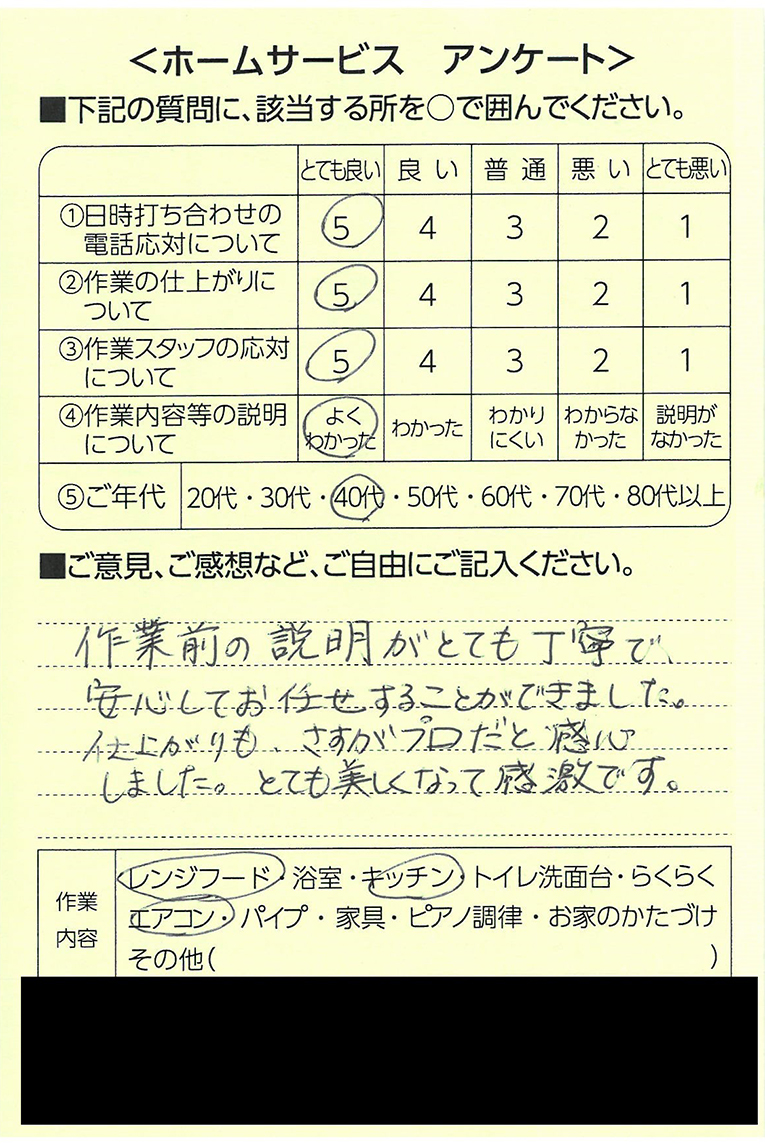 ＜ホームサービス　アンケート＞
■下記の質問に、該当する所を○で囲んでください。
とても良い　良い　普通　悪い　とても悪い
①日時打ち合わせの
電話応対について　5　4　3　2　1
②作業の仕上がりに
ついて　5　4　3　2　1
③作業スタッフの応対
について　5　4　3　2　1
④作業内容等の説明　よく　わかった　わかり　わからな　説明が
について　わかった　にくい　かった　なかった
⑤ご年代　20代・30代・40代・50代・60代・70代・80代以上
■ご意見、ご感想など、ご自由にご記入ください。
作業前の説明がとても丁寧で、
安心してお任せすることができました。
仕上がりも、さすがプロだと感心
しました。とても美しくなって感激です。
作業
内容
レンジフード・浴室・キッチン・トイレ洗面台・らくらく
エアコン・パイプ・家具・ピアノ調律・お家のかたづけ
その他(　)